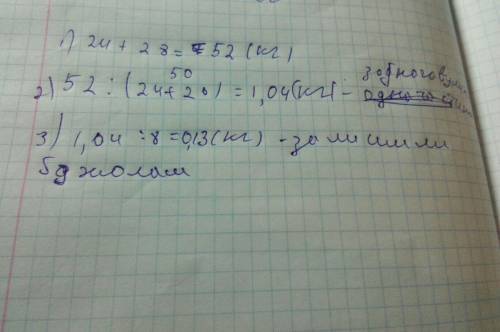 1) 24 + 28 = 52 (кг)
50
2) 52 : (24 + 26) = 1,04 (кг) - з одного вулика
3) 1,04 : 8 = 0,13 (кг) - залишили
бджолам